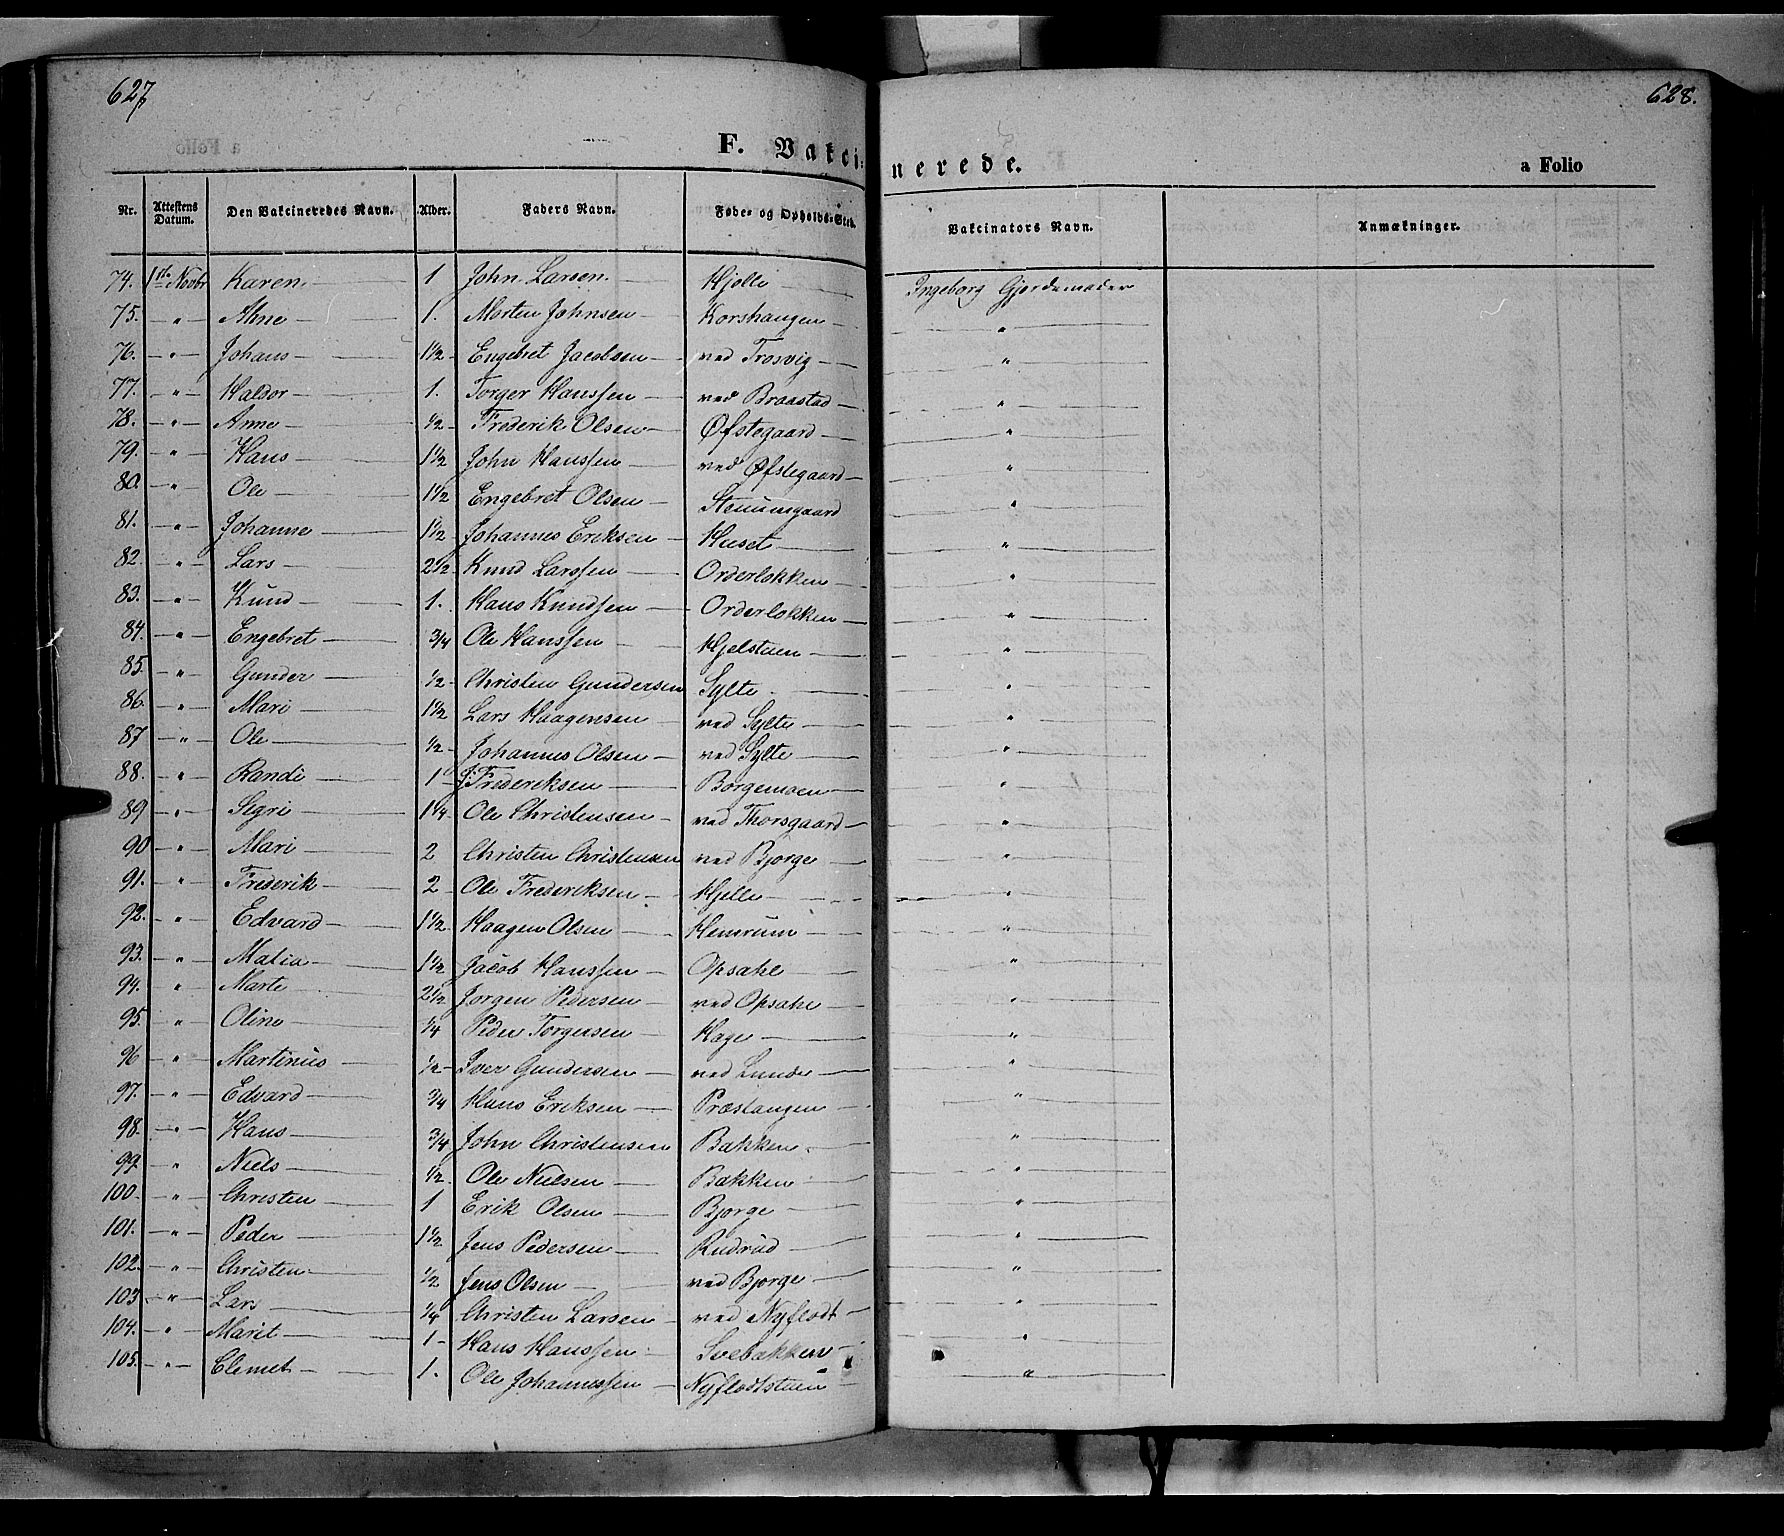 627
628.
F. Vakcinerede.
a Folio
Nr. Attestens Datum. Den Vakcineredes Navn. Alder. Faders Navn. Føde- og Opholds-Sted. Vakcinators Navn. Anmækninger.
74. 1ste Novbr Karen 1 John Larsen Kjølle Ingeborg Gjordemoder
75. " Ahne 1. Morten Johnsen Korshaugen "
76. " Johans 1 1/2 Engebret Jacobsen ved Trosvig "
77. " Haldor 1. Torger Hanssen ved Braastad "
78. " Anne 1/2 Frederik Olsen Øfstegaard "
79. " Hans 1 1/2 John Hanssen ved Øfstegaard "
80. " Ole 1 1/2 Engebret Olsen "
81. " Johanne 1 1/2 Johannes Eriksen Huset "
82. " Lars 2 1/2 Knud Larssen Orderløkken "
83. " Knud 1. Hans Knudssen Orderløkken "
84. " Engebret 3/4 Ole Hanssen Hjelstuen "
85. " Gunder 1/2 Christen Gundersen Sylte "
86. " Mari 1 1/2 Lars Haagensen ved Sylte "
87 " Ole 1/2 Johannes Olsen ved Sylte "
88. " Randi 1 J: Frederiksen Borgemoen "
89 " Segri 1 1/4 Ole Christensen ved Thorsgaard "
90 " Mari 2 Christen Christensen ved Bjørge "
91. " Frederik 2 Ole Frederiksen Hjelle "
92. " Edvard 1 1/2 Haagen Olsen "
93. " Matia 1 1/2 Jacob Hanssen Opsahl "
94. " Marte 2 1/2 Jørgen Pedersen ved Opsahl "
95. " Oline 1/4 Peder Torgersen Hage "
96 " Martinus 1/2 Iver Gundersen ved Lunde "
97. " Edvard 3/4 Hans Eriksen Præstangen "
98. " Hans 3/4 John Christensen Bakken "
99. " Niels 1/2 Ole Nielsen Bakken "
100. " Christen 1 Erik Olsen Bjørge "
101. " Peder 1 1/2 Jens Pedersen Rudrud "
102. " Christen 1/2 Jens Olsen ved Bjørge "
103 " Lars 1/4 Christen Larsen ved Nyflodt "
104. " Marit 1 Hans Hanssen Svebakken "
105. " Clemet 1. Ole Johannessen Nyflodtstuen "